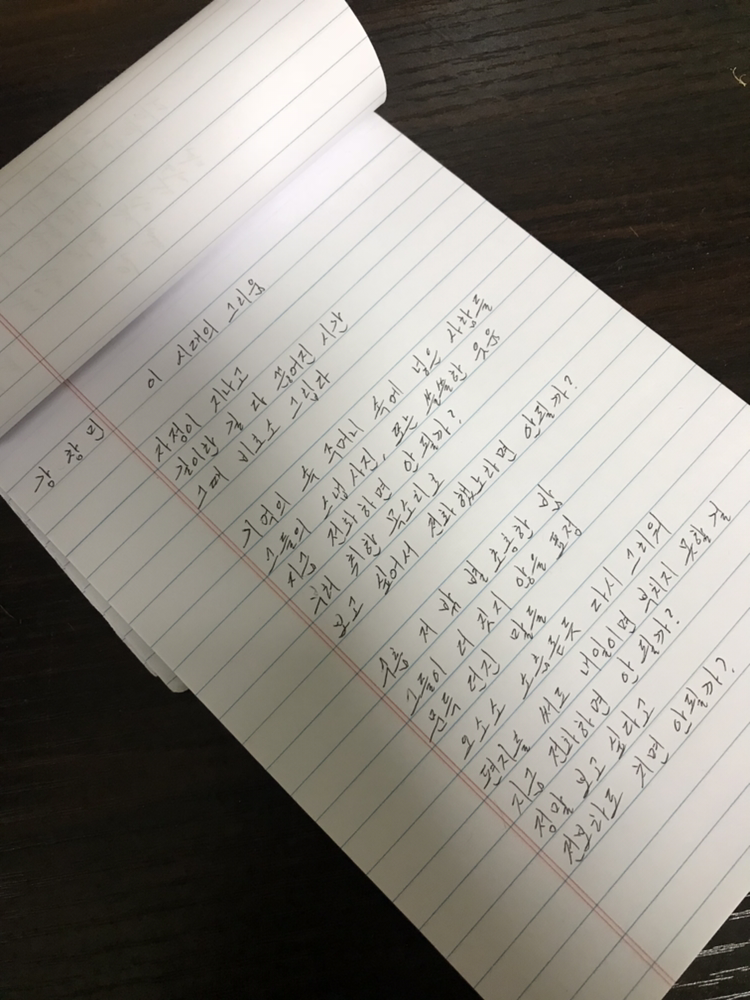 이 시대의 그리움
강창민
자정이 지나고
길이란 길 다 끊어진 시간
그때 비로소 그립다
기억의 속 주머니 속에 넣은 사람들
그들의 스냅 사진, 또는 쓸쓸한 웃음
지금 전화하면 안 될까?
우리 취한 목소리로
보고 싶어서 전화했노라면 안될까?
수풍 저 밖 별 총총한 밤
그들이 더 짓지 않을 표정
문득 던진 말들
오소소 소름돋듯 다시 그리워
편지를 써도 내일이면 부치지 못할 걸
지금 전화하면 안 될까?
정말 보고 싶다고
전보라도 치면 안될까?